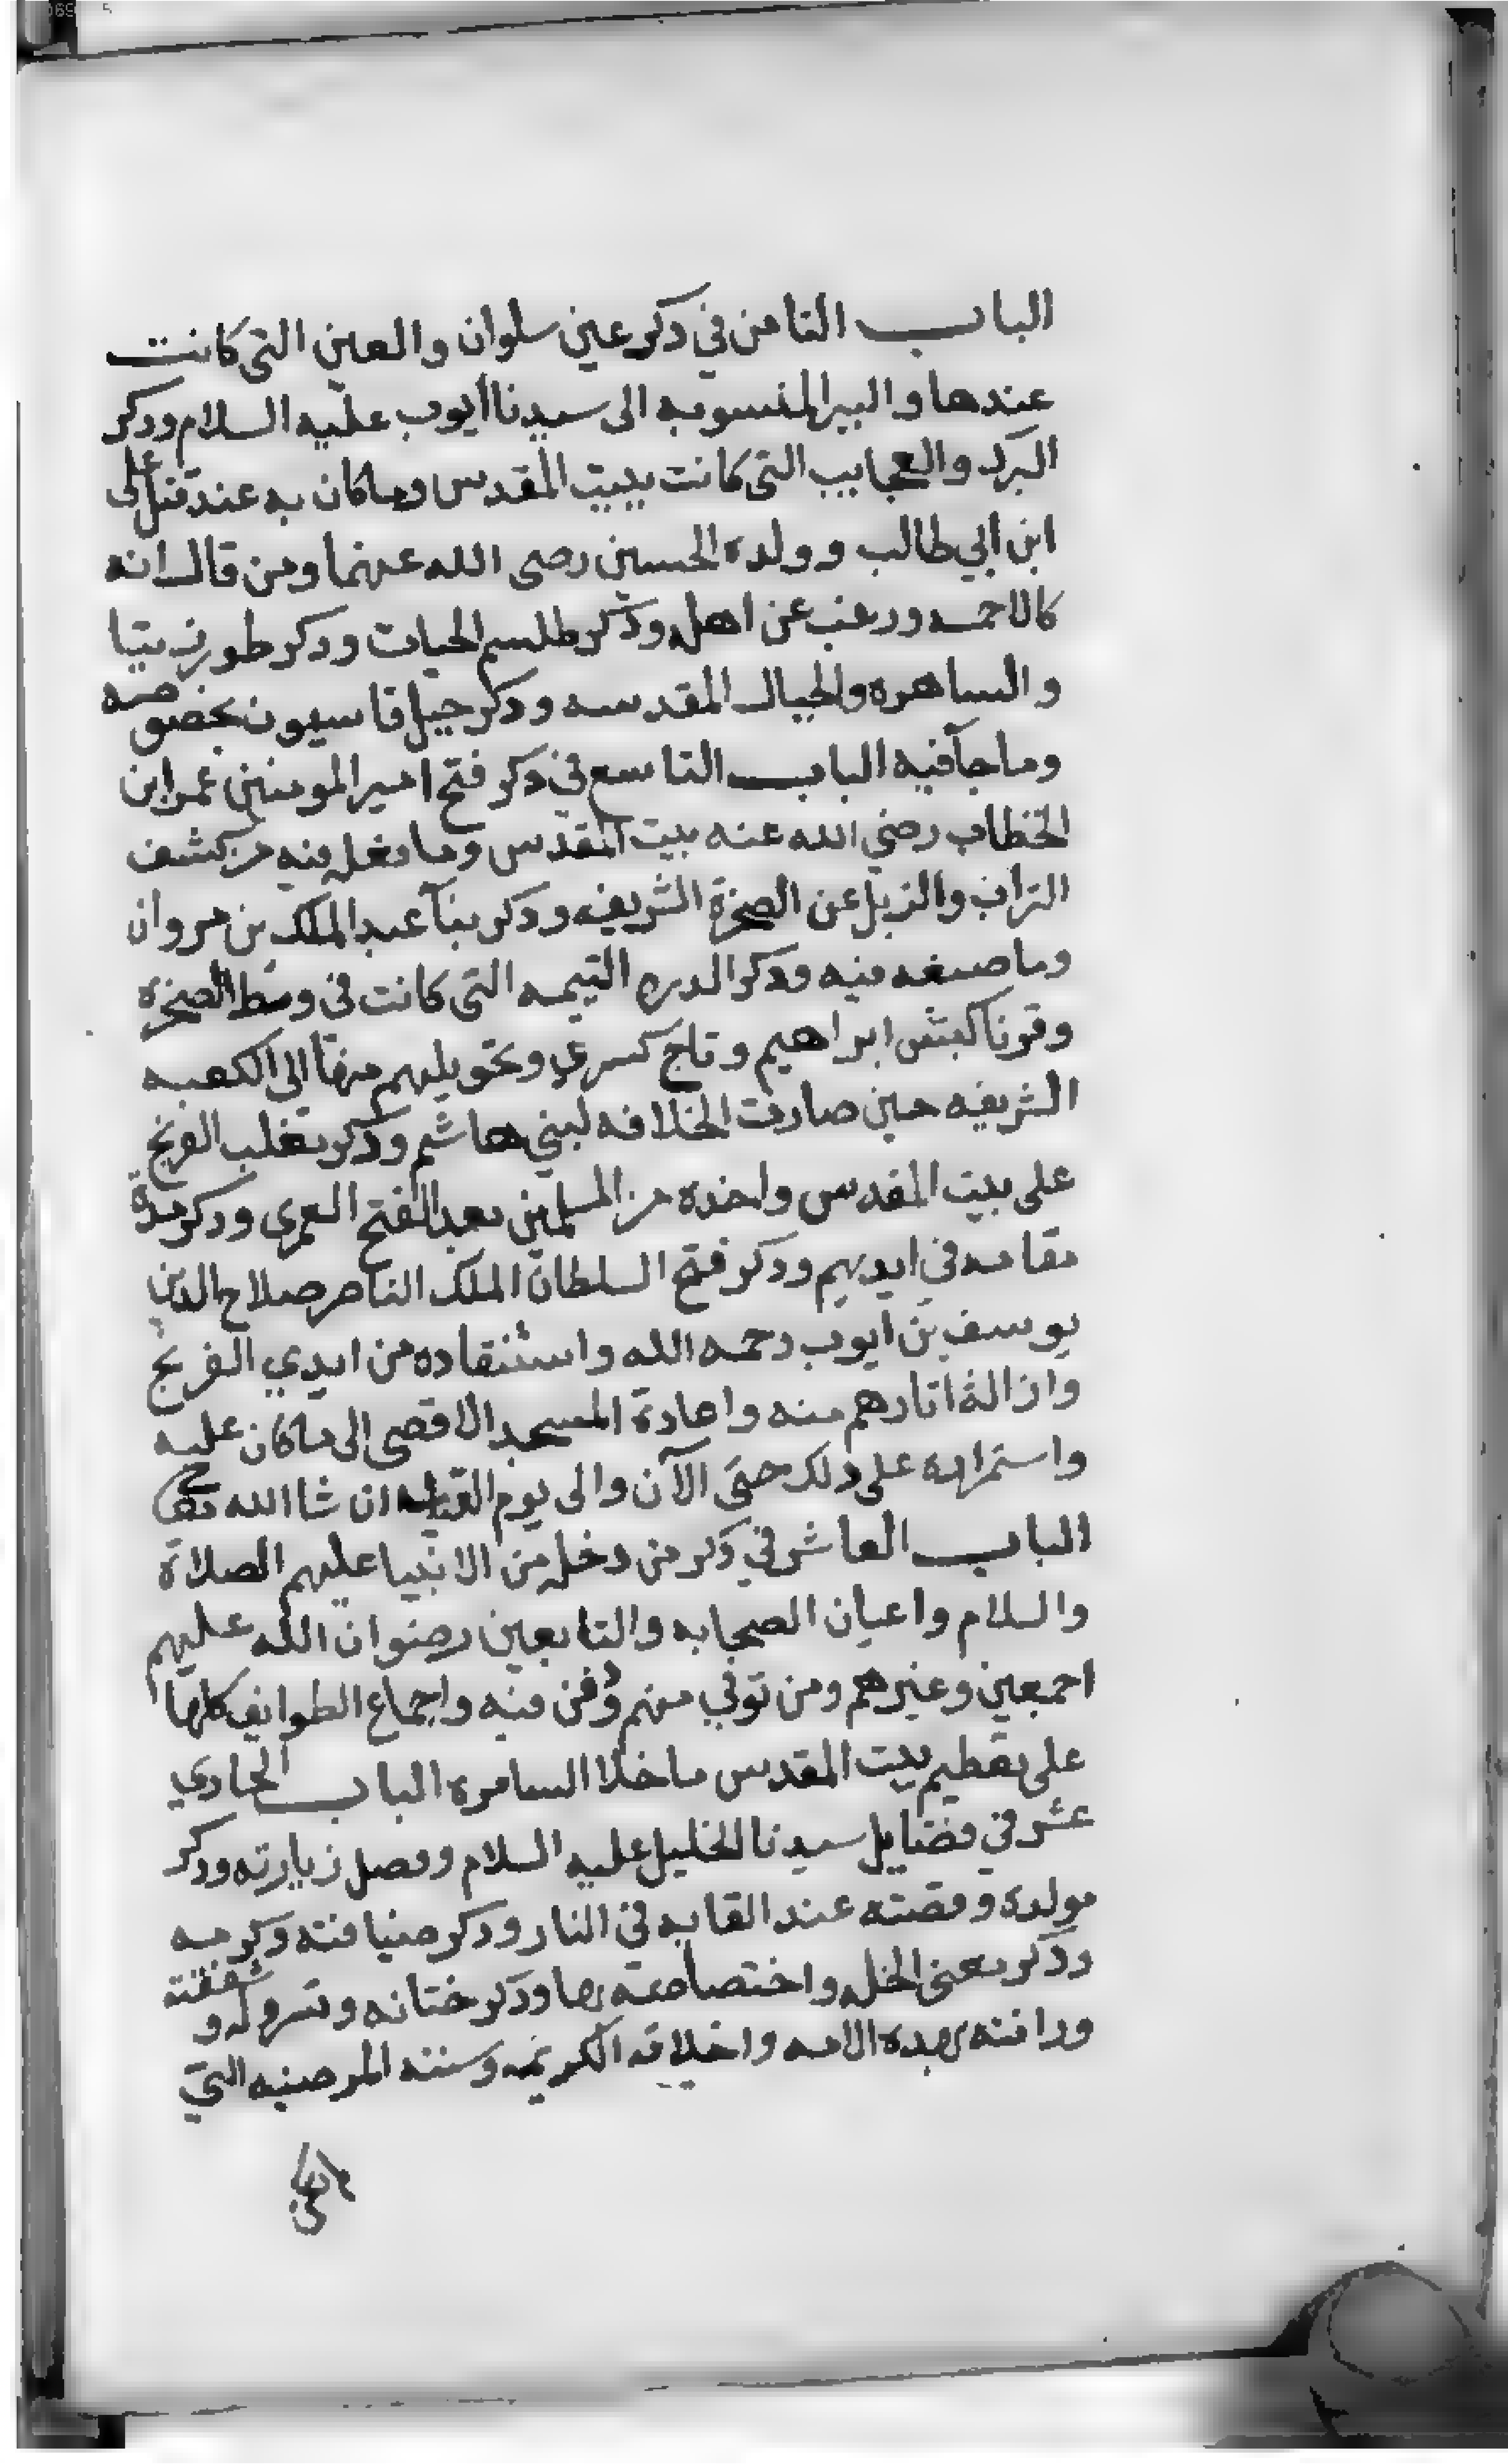 الباب الثامن في ذكر عين سلوان والعين التي كانت
عندها والبير المنسوبه الى سيدنا أيوب عليه السلام وذكر
البرك والعجايب التي كانت ببيت المقدس وماكان به عند قتل علي
ابن ابي طالب وولده الحسين رضى الله عنهما ومن قال انه
كالاجمه ورغب عن اهله وذكر طلسم الحيات وذكر طور زيتا
والساهره والجبال المقدسه وذكر جبل قاسيون بخصوصه
وما جآ فيه الباب التاسع في ذكر فتح امير المومنين عمر ابن
الخطاب رضي الله عنه بيت المقدس وما فعله فيه من كشف
التراب والزبل عن الصخرة الشريفه وذكر بنآ عبد الملك بن مروان
وما صنعه فيه وذكر الدره اليتيمه التي كانت في وسط الصخره
وقرنا كبش ابراهيم وتاج كسرى وتحويلهم منها الى الكعبه
الشريفه حين صارت الخلافه لبني هاشم وذكر تغلب الفرنج
على بيت المقدس واخذه من المسلمين بعد الفتح العمري وذكر مدة
مقامه في ايديهم وذكر فتح السلطان الملك الناصر صلاح الدين
يوسف بن ايوب رحمه الله واستنقاده من ايدي الفرنج
وازالة اثارهم منه واعادة المسجد الاقصى الى ماكان عليه
واستمراره على ذلك حتى الآن والى يوم القيامه ان شا الله تعالى
الباب العاشر في ذكر من دخله من الانبيا عليهم الصلاة
والسلام واعيان الصحابه والتابعين رضوان الله عليهم
اجمعين وغيرهم ومن توفي منهم ودفن فيه واجماع الطوايف كلها
على تعظيم بيت المقدس ماخلا السامره الباب الحادي
عشر في فضايل سيدنا الخليل عليه السلام وفضل زيارته وذكر
مولده وقصته عند القايه في النار وذكر ضيافته وكرمه
وذكر معنى الخله واختصاصه بها وذكر ختانه وتسروله وشفقته
ورافته بهده الامه واخلاقه الكريمه وسننه المرضيه التي